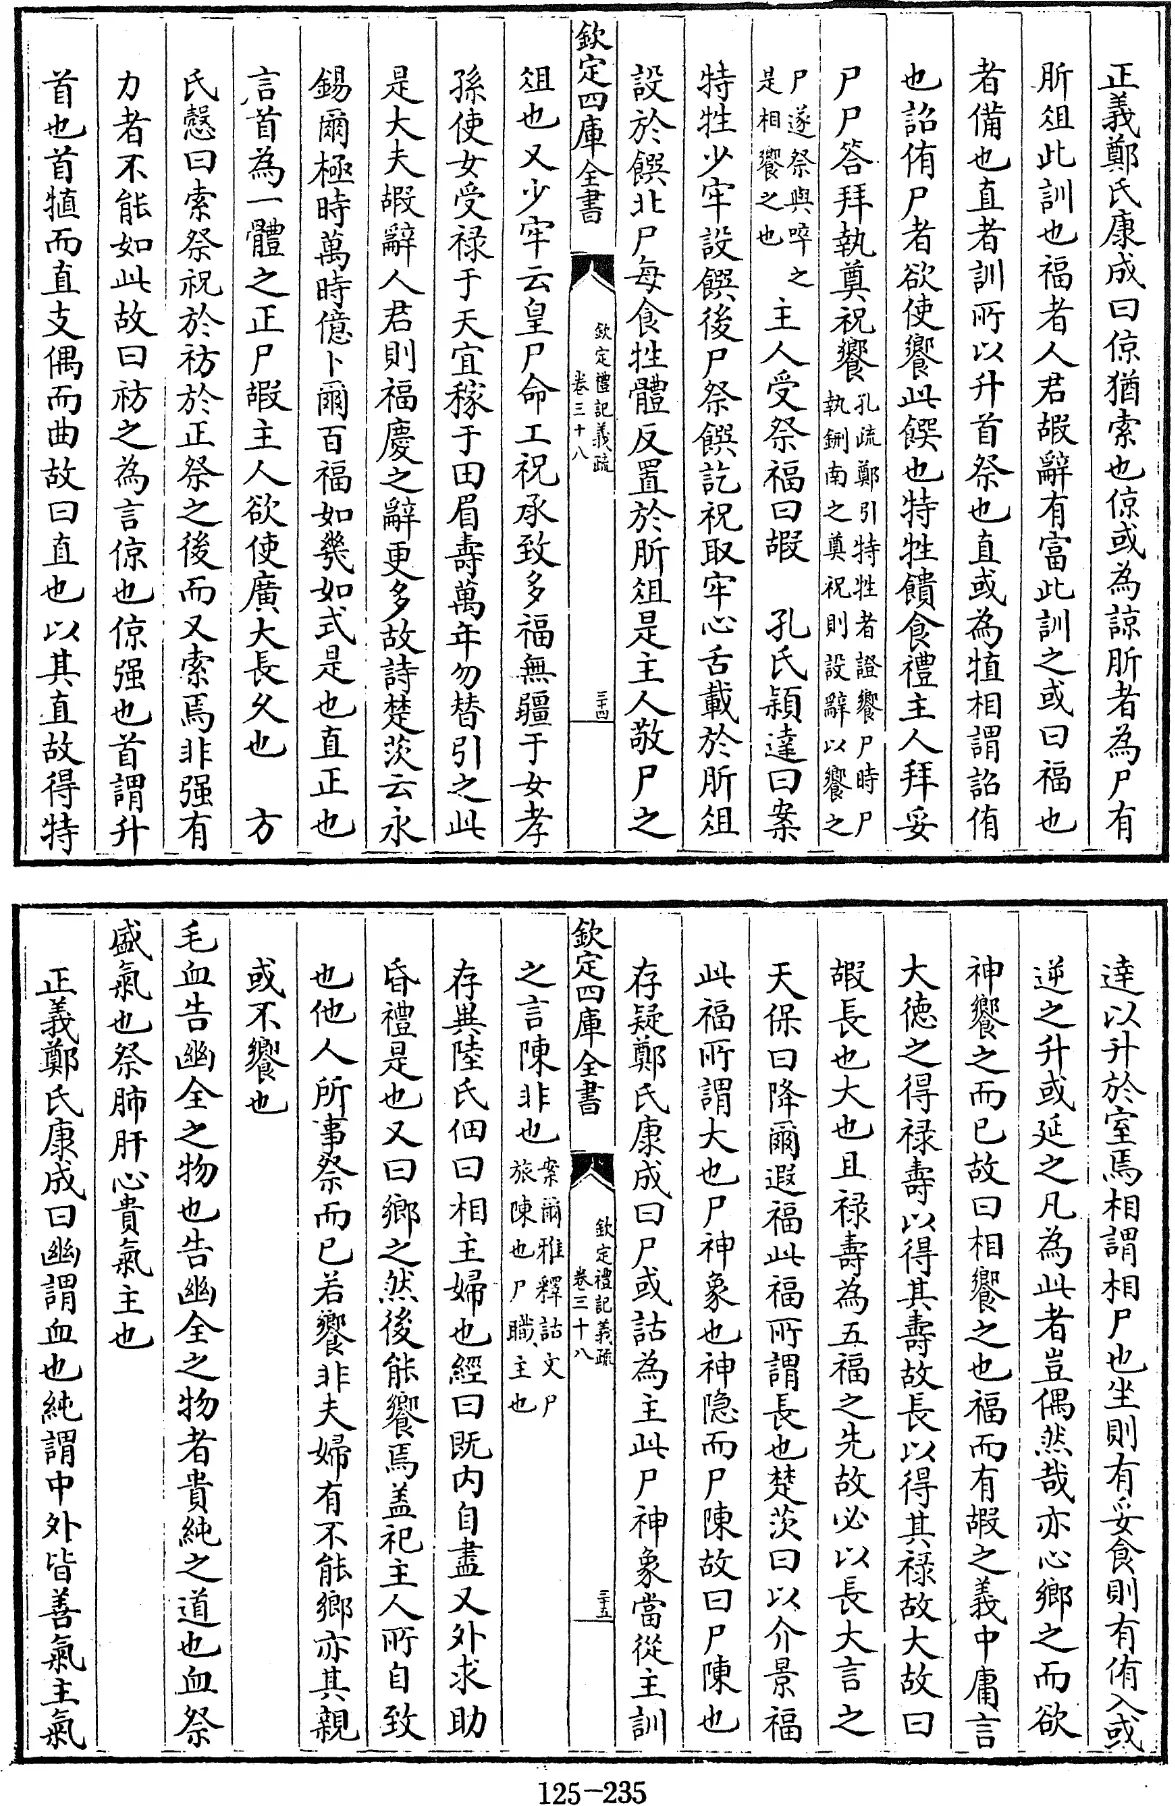 正義鄭氏康成曰倞猶索也倞或為諒肵者為尸有
肵俎此訓也福者人君嘏辭有富此訓之或曰福也
者備也直者訓所以升首祭也直或為犆相謂詔侑
也詔侑尸者欲使饗此饌也特牲饋食禮主人拜妥
尸尸答拜執奠祝饗孔疏鄭引特牲者證饗尸時尸
執鉶南之奠祝則設辭以饗之
尸遂祭與啐之
是相饗之也主人受祭福曰嘏　孔氏穎達曰案
特牲少牢設饌後尸祭饌訖祝取牢心舌載於肵俎
設於饌北尸每食牲體反置於肵俎是主人敬尸之
欽定四庫全書
欽定禮記義疏
卷三十八
三十四
俎也又少牢云皇尸命工祝承致多福無疆于女孝
孫使女受禄于天宜稼于田眉壽萬年勿替引之此
是大夫嘏辭人君則福慶之辭更多故詩楚茨云永
錫爾極時萬時億卜爾百福如幾如式是也直正也
言首為一體之正尸嘏主人欲使廣大長久也　方
氏慤曰索祭祝於祊於正祭之後而又索焉非强有
力者不能如此故曰祊之為言倞也倞强也首謂升
首也首犆而直支偶而曲故曰直也以其直故得特
達以升於室焉相謂相尸也坐則有妥食則有侑入或
逆之升或延之凡為此者豈偶然哉亦心鄉之而欲
神饗之而已故曰相饗之也福而有嘏之義中庸言
大徳之得禄壽以得其壽故長以得其禄故大故曰
嘏長也大也且禄壽為五福之先故必以長大言之
天保曰降爾遐福此福所謂長也楚茨曰以介景福
此福所謂大也尸神象也神隐而尸陳故曰尸陳也
存疑鄭氏康成曰尸或詁為主此尸神象當從主訓
欽定四庫全書
欽定禮記義疏
卷三十八
三十五
之言陳非也案爾雅釋詁文尸
旅陳也尸職主也
存異陸氏佃曰相主婦也經曰既内自盡又外求助
昏禮是也又曰鄉之然後能饗焉盖祀主人所自致
也他人所事祭而已若饗非夫婦有不能鄉亦其親
或不饗也
毛血告幽全之物也告幽全之物者貴純之道也血祭
盛氣也祭肺肝心貴氣主也
正義鄭氏康成曰幽謂血也純謂中外皆善氣主氣
125-235